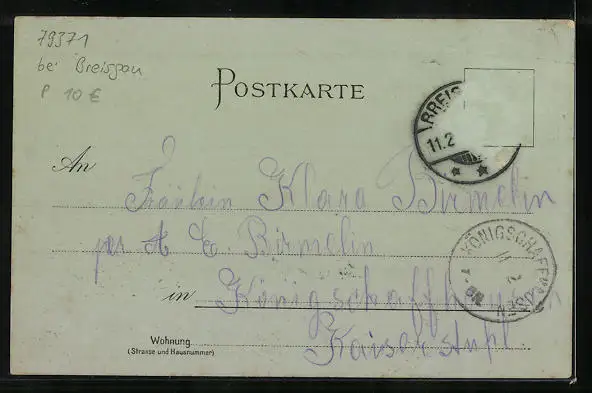 79371
bei Breisgau
P 10 €
POSTKARTE
BREIS
11.2
An
Fräulein Klara Birmelin
per A E. Birmelin
KÖNIGSCHAFFHAUSEN
11 2
in Königschaffhausen
Wohnung
(Strasse und Hausnummer)
Kaiserstuhl